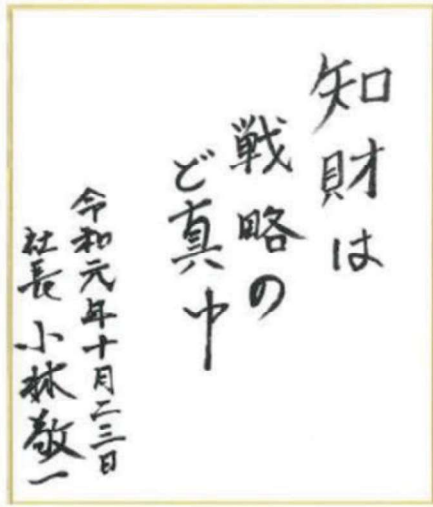 知財は
戦略の
ど真中
令和元年十月二三日
社長 小林敬一